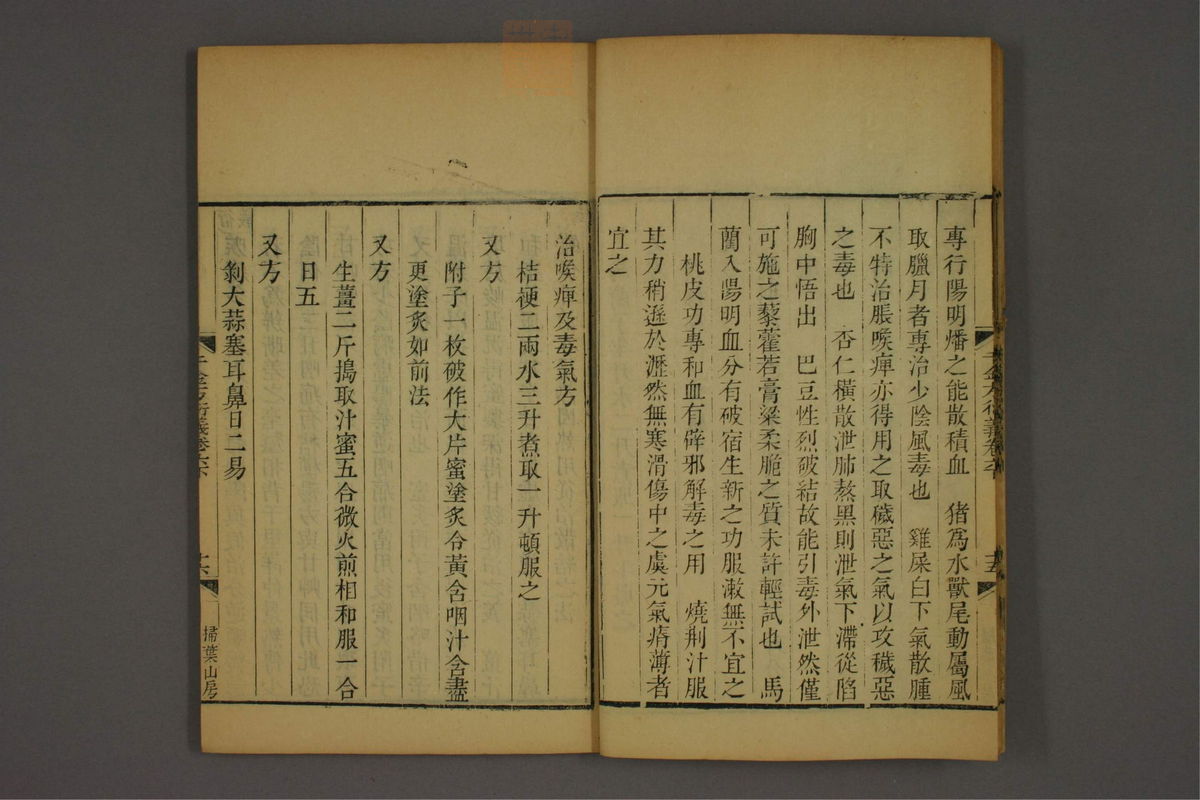 專行陽明燔之能散積血　猪爲水獸尾動屬風
取臘月者專治少陰風毒也　雞屎白下氣散腫
不特治脹喉痺亦得用之取穢惡之氣以攻穢惡
之毒也　杏仁橫散泄肺熬黑則泄氣下滯從陷
胸中悟出　巴豆性烈破結故能引毒外泄然僅
可施之藜藿若膏粱柔脆之質未許輕試也　馬
藺入陽明血分有破宿生新之功服漱無不宜之
桃皮功專和血有辟邪解毒之用　燒荆汁服
其力稍遜於瀝然無寒滑傷中之虞元氣瘠薄者
宜之
治喉痺及毒氣方
桔梗二兩水三升煮取一升頓服之
又方
附子一枚破作大片蜜塗炙令黃含咽汁含盡
更塗炙如前法
又方
生薑二斤搗取汁蜜五合微火煎相和服一合
日五
又方
剝大蒜塞耳鼻日二易
千金方衍義卷六下
十六
掃葉山房